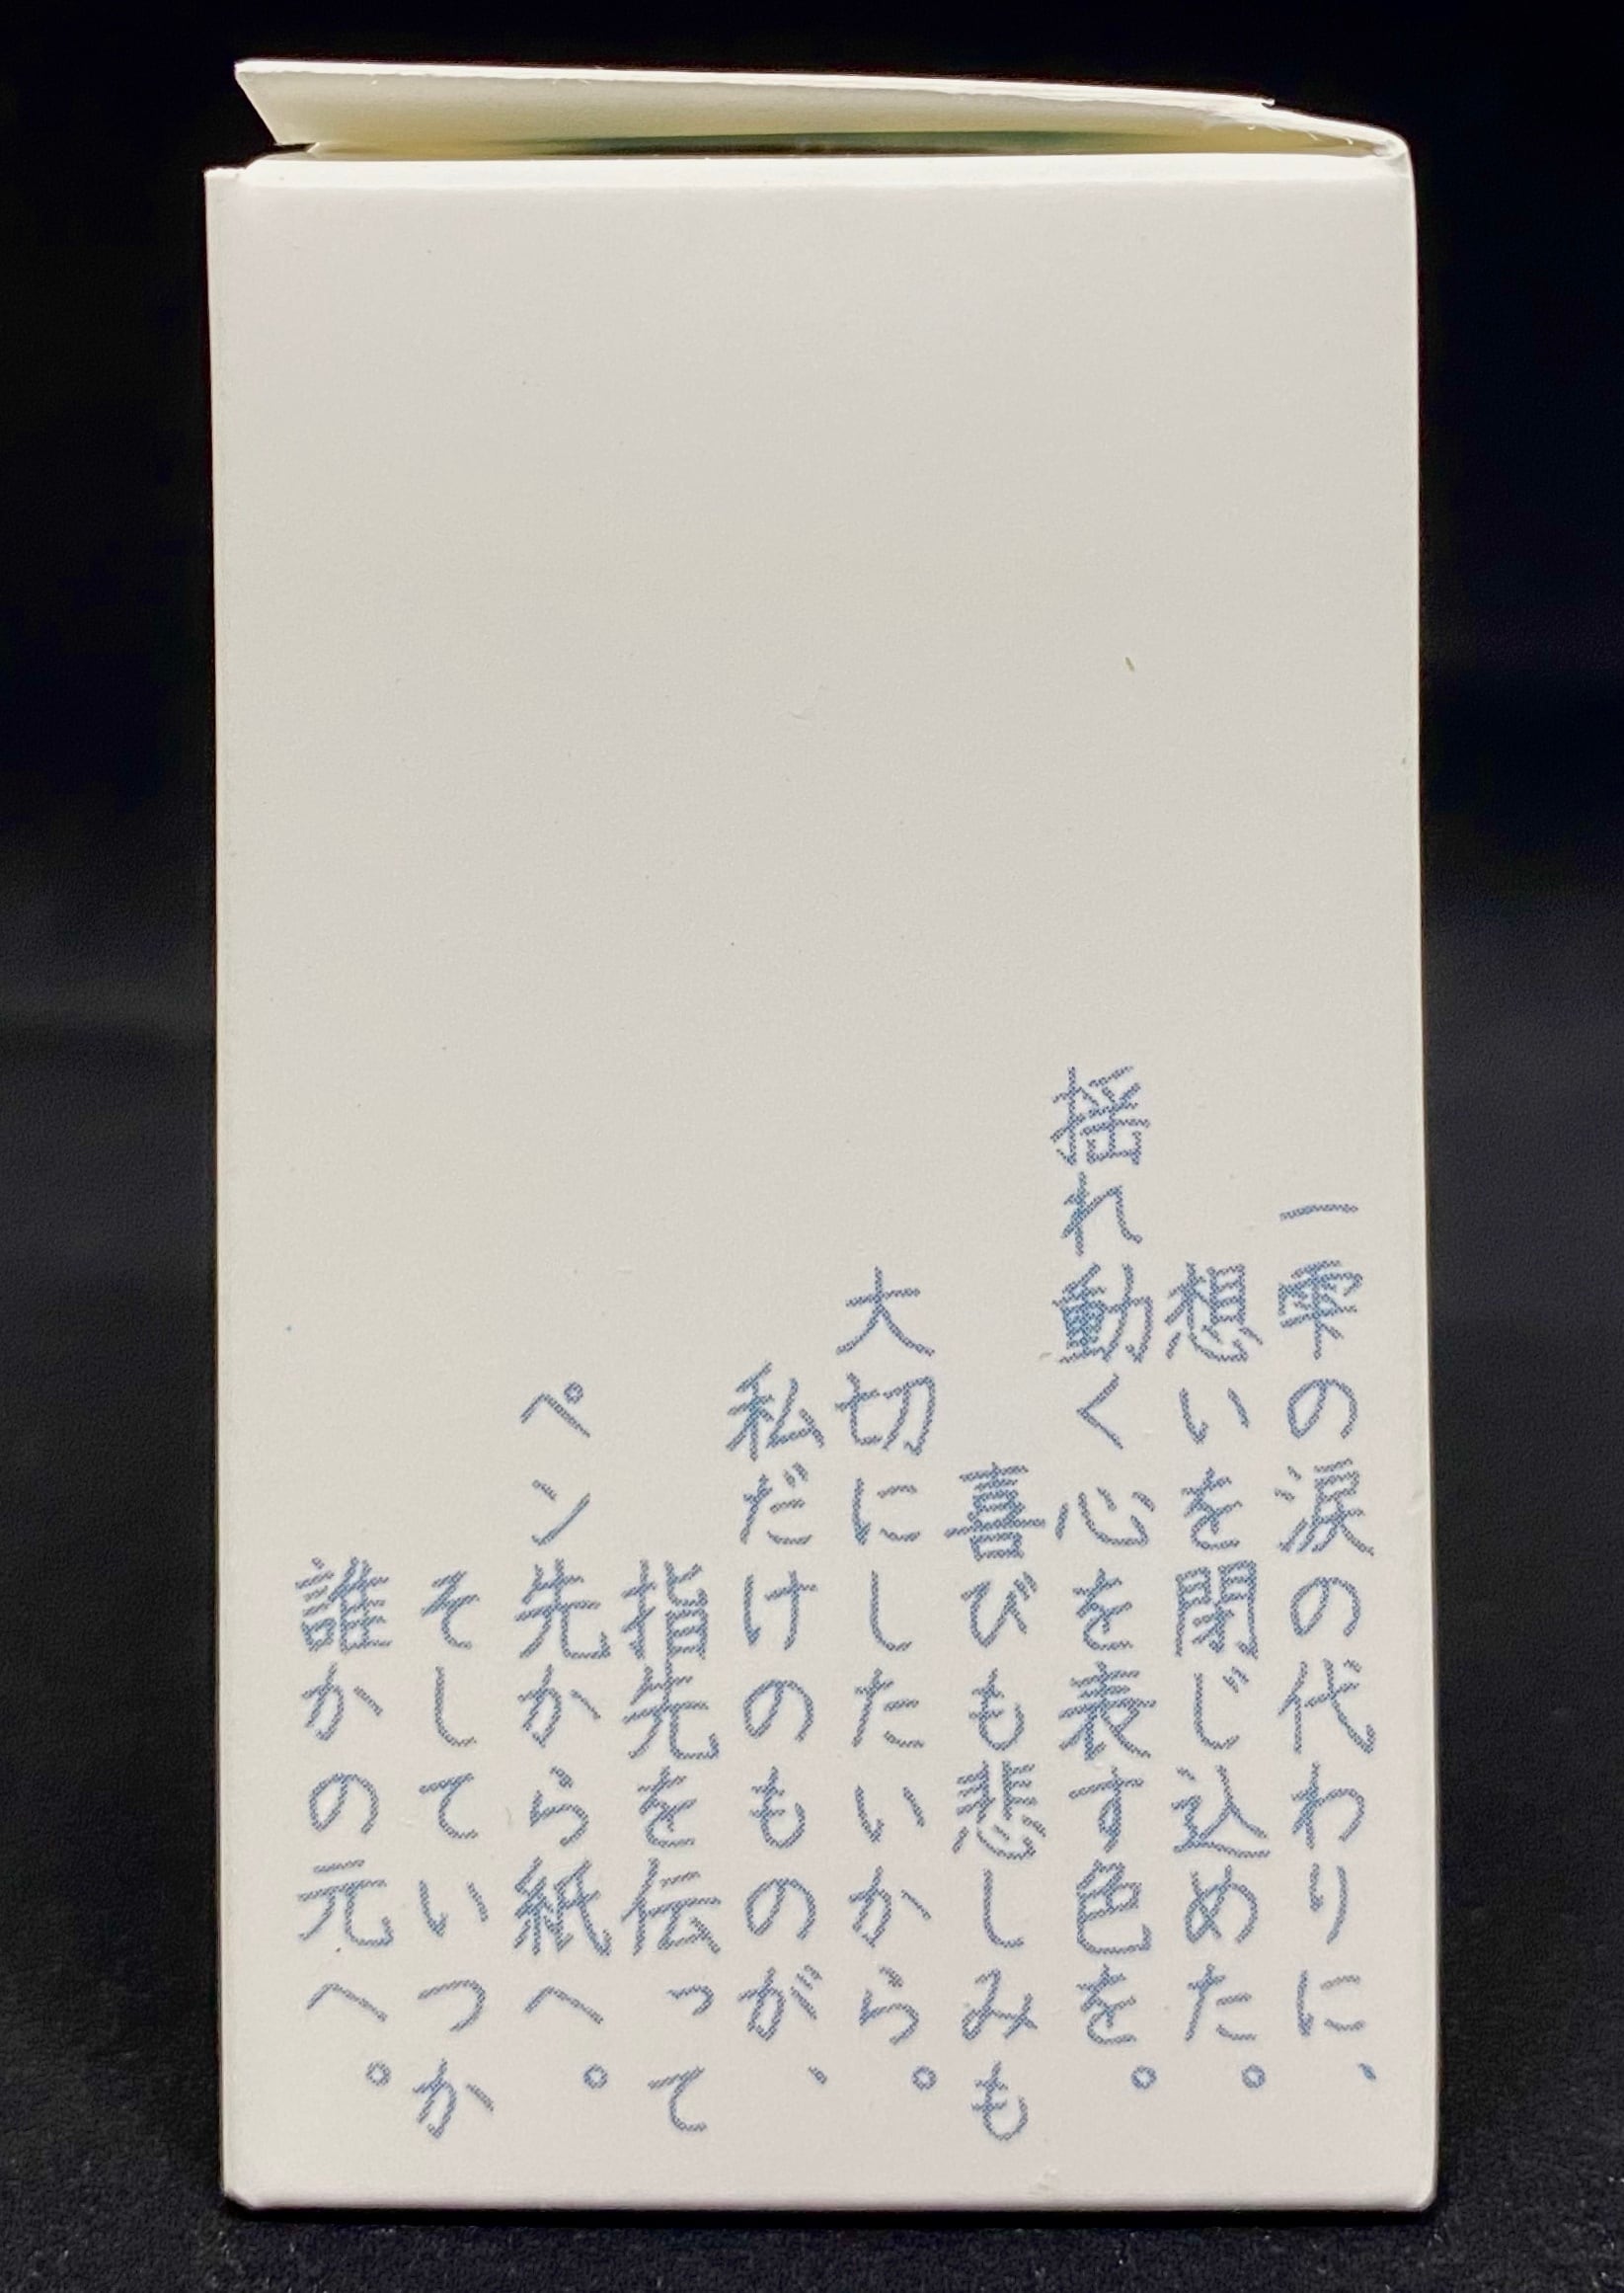 一雫の涙の代わりに、
想いを閉じ込めた。
揺れ動く心を表す色を。
喜びも悲しみも
大切にしたいから。
私だけのものが、
指先を伝って
ペン先から紙へ。
そしていつか
誰かの元へ。